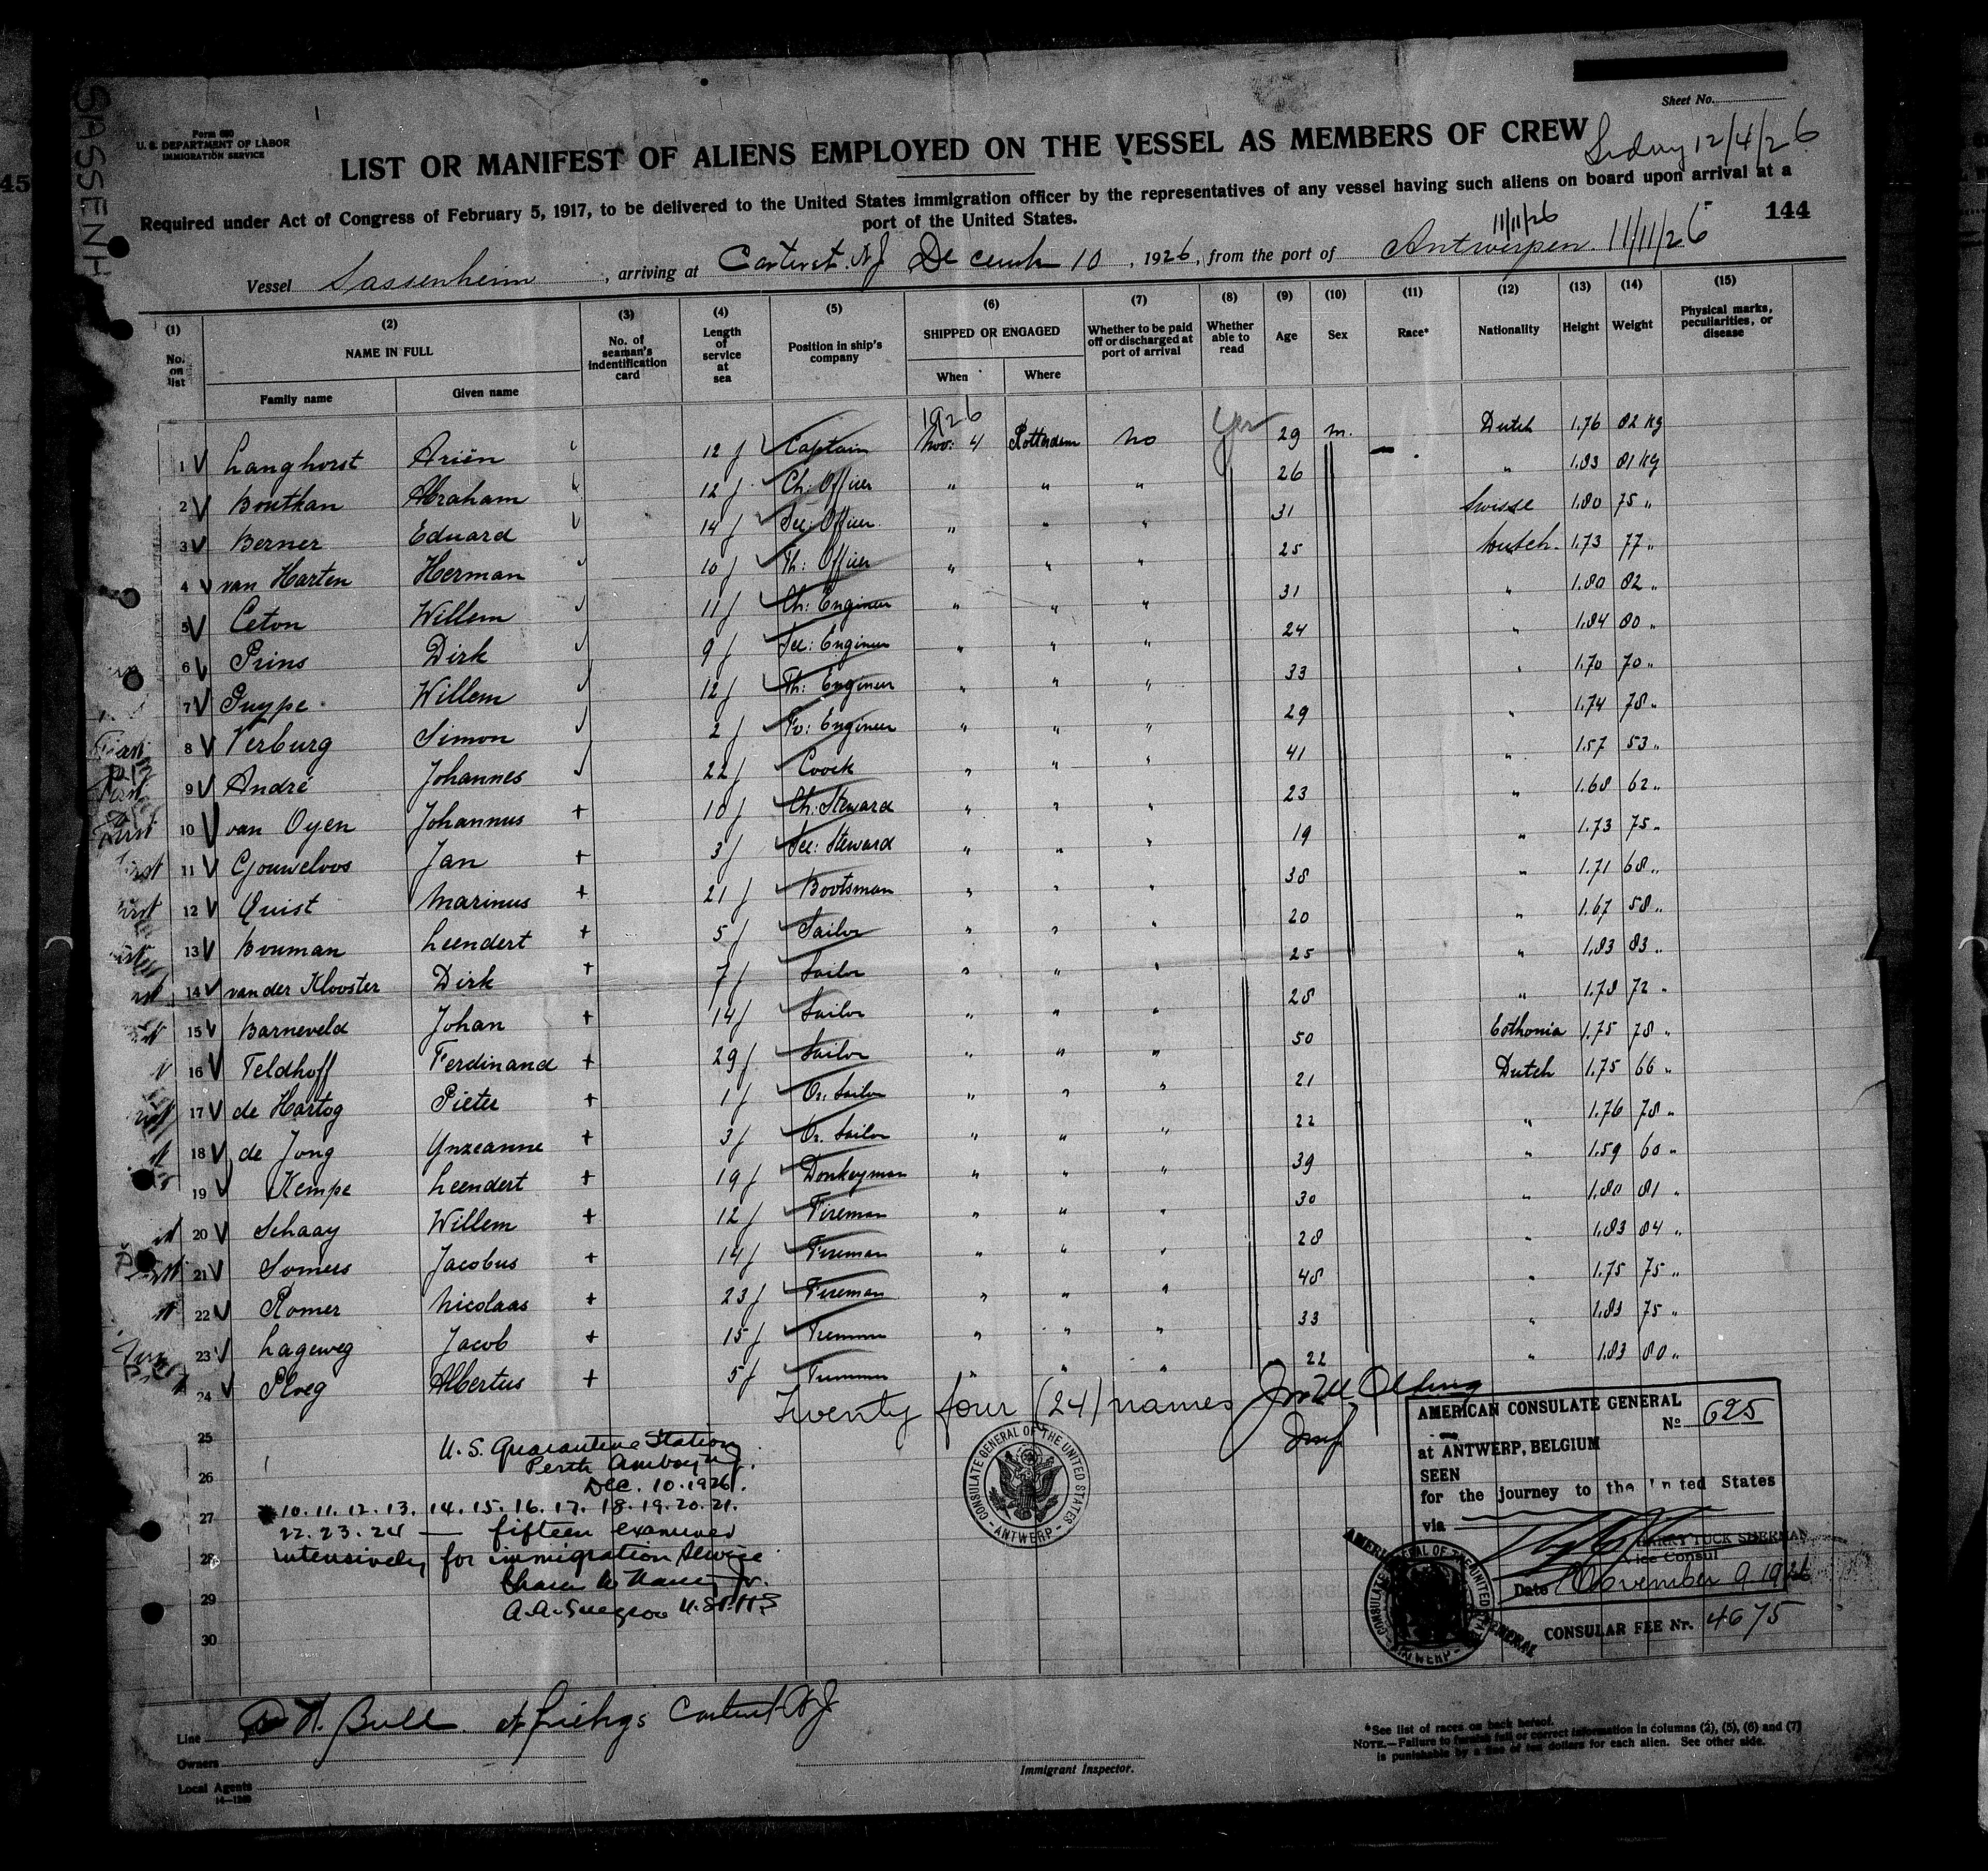 SASSENH
Form 680
U. S. DEPARTMENT OF LABOR
IMMIGRATION SERVICE
Sheet No.
LIST OR MANIFEST OF ALIENS EMPLOYED ON THE VESSEL AS MEMBERS OF CREW
12/4/26
Required under Act of Congress of February 5, 1917, to be delivered to the United States immigration officer by the representatives of any vessel having such aliens on board upon arrival at a
port of the United States.
11/11/26
144
45
Vessel Sassenheim, arriving at Carteret. NJ December 10, 1926, from the port of Antwerpen. 11/11/26
(1) (2) (3) (4) (5) (6) (7) (8) (9) (10) (11) (12) (13) (14) (15)
No. on list NAME IN FULL No. of seaman's indentification card Length of service at sea Position in ship's company SHIPPED OR ENGAGED Whether to be paid off or discharged at port of arrival Whether able to read Age Sex Race* Nationality Height Weight Physical marks, peculiarities, or disease
Family name Given name When Where
1926
1 Langhorst Ariën 12 j Captain Nov: 4 Rotterdam No Yes 29 m. Dutch 1.76 82 kg
2 Bouthan Abraham 12 j Ch: Officer " " " 26 " 1.83 81 kg
3 Berner Eduard 14 j Sec: Officer " " " 31 Swisse 1.80 75 "
4 van Harten Herman 10 j Th: Officer " " " 25 Dutch. 1.73 77 "
5 Ceton Willem 11 j Ch: Engineer " " " 31 " 1.80 82 "
6 Prins Dirk 9 j Sec: Engineer " " " 24 " 1.84 80 "
7 Willem 12 j Th: Engineer " " " 33 " 1.70 70 "
8 Verburg Simon 2 j Fo: Engineer " " " 29 " 1.74 78 "
9 André Johannes 22 j Coock " " " 41 " 1.57 53 "
10 van Oyen Johannus + 10 j Ch: Steward " " " 23 " 1.68 62 "
11 Gouweloos Jan + 3 j Sec: Steward " " " 19 " 1.73 75 "
12 Quist Marinus + 21 j Bootsman " " " 38 " 1.71 68 "
13 Bouman Leendert + 5 j Sailor " " " 20 " 1.67 58 "
14 van der Klooster Dirk + 7 j Sailor " " " 25 " 1.83 83 "
15 Barneveld Johan + 14 j Sailor " " " 28 " 1.78 72 "
16 Teldhoff Ferdinand + 29 j Sailor " " " 50 Esthonia 1.75 78 "
17 de Hartog Pieter + 1 j Or. Sailor " " " 21 Dutch 1.75 66 "
18 de Jong Ynzeanne + 3 j Or. Sailor " " " 22 " 1.76 78 "
19 Kempe Leendert + 19 j Donkeyman " " " 39 " 1.59 60 "
20 Schaay Willem + 12 j Fireman " " " 30 " 1.80 81 "
21 Somers Jacobus + 14 j Fireman " " " 28 " 1.83 84 "
22 Romer Nicolaas + 23 j Fireman " " " 48 " 1.75 75 "
23 Lageweg Jacob + 15 j Tremmer " " " 33 " 1.83 75 "
24 Ploeg Albertus + 5 j Tremmer " " " 22 " 1.83 80 "
Twenty four (24) names
25
26
27
28
29
30
U. S. Quarantine Station
Perth Amboy NJ.
Dec. 10. 1926.
10. 11. 12. 13. 14. 15. 16. 17. 18. 19. 20. 21.
22. 23. 24 — fifteen examined
intensively for immigration service
U.S.P.H.S
CONSULATE GENERAL OF THE UNITED STATES
- ANTWERP -
AMERICAN CONSULATE GENERAL
No 625
at ANTWERP, BELGIUM
SEEN
for the journey to the United States
via
HARRY TUCK SHERMAN
Vice Consul
Date November 9 1926
CONSULAR FEE Nr. 4675
CONSULATE GENERAL OF THE UNITED STATES
- ANTWERP -
Line A H. Bull Carteret NJ
Owners
Local Agents
14—1240
Immigrant Inspector.
*See list of races on back hereof.
NOTE.—Failure to furnish full or correct information in columns (2), (5), (6) and (7)
is punishable by a fine of ten dollars for each alien. See other side.